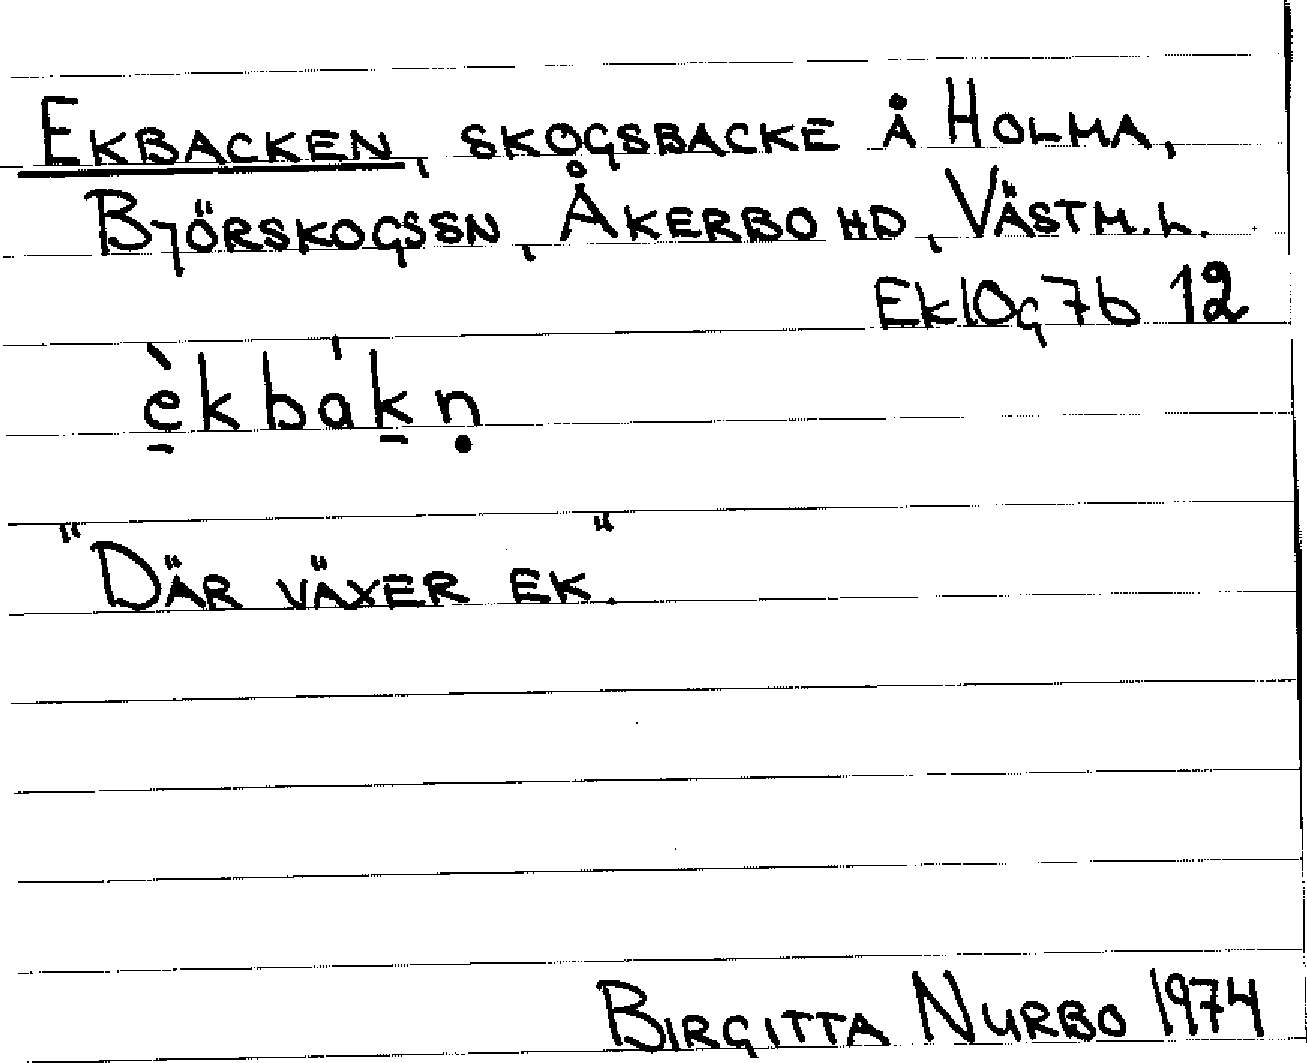 EKBACKEN, SKOGSBACKE Å HOLMA,
BJÖRSKOGSSN, ÅKERBO HD, VÄSTM.L.
Ek10g7b 12
è̱kbáḵṇ
"DÄR VÄXER EK."
BIRGITTA NURBO 1974